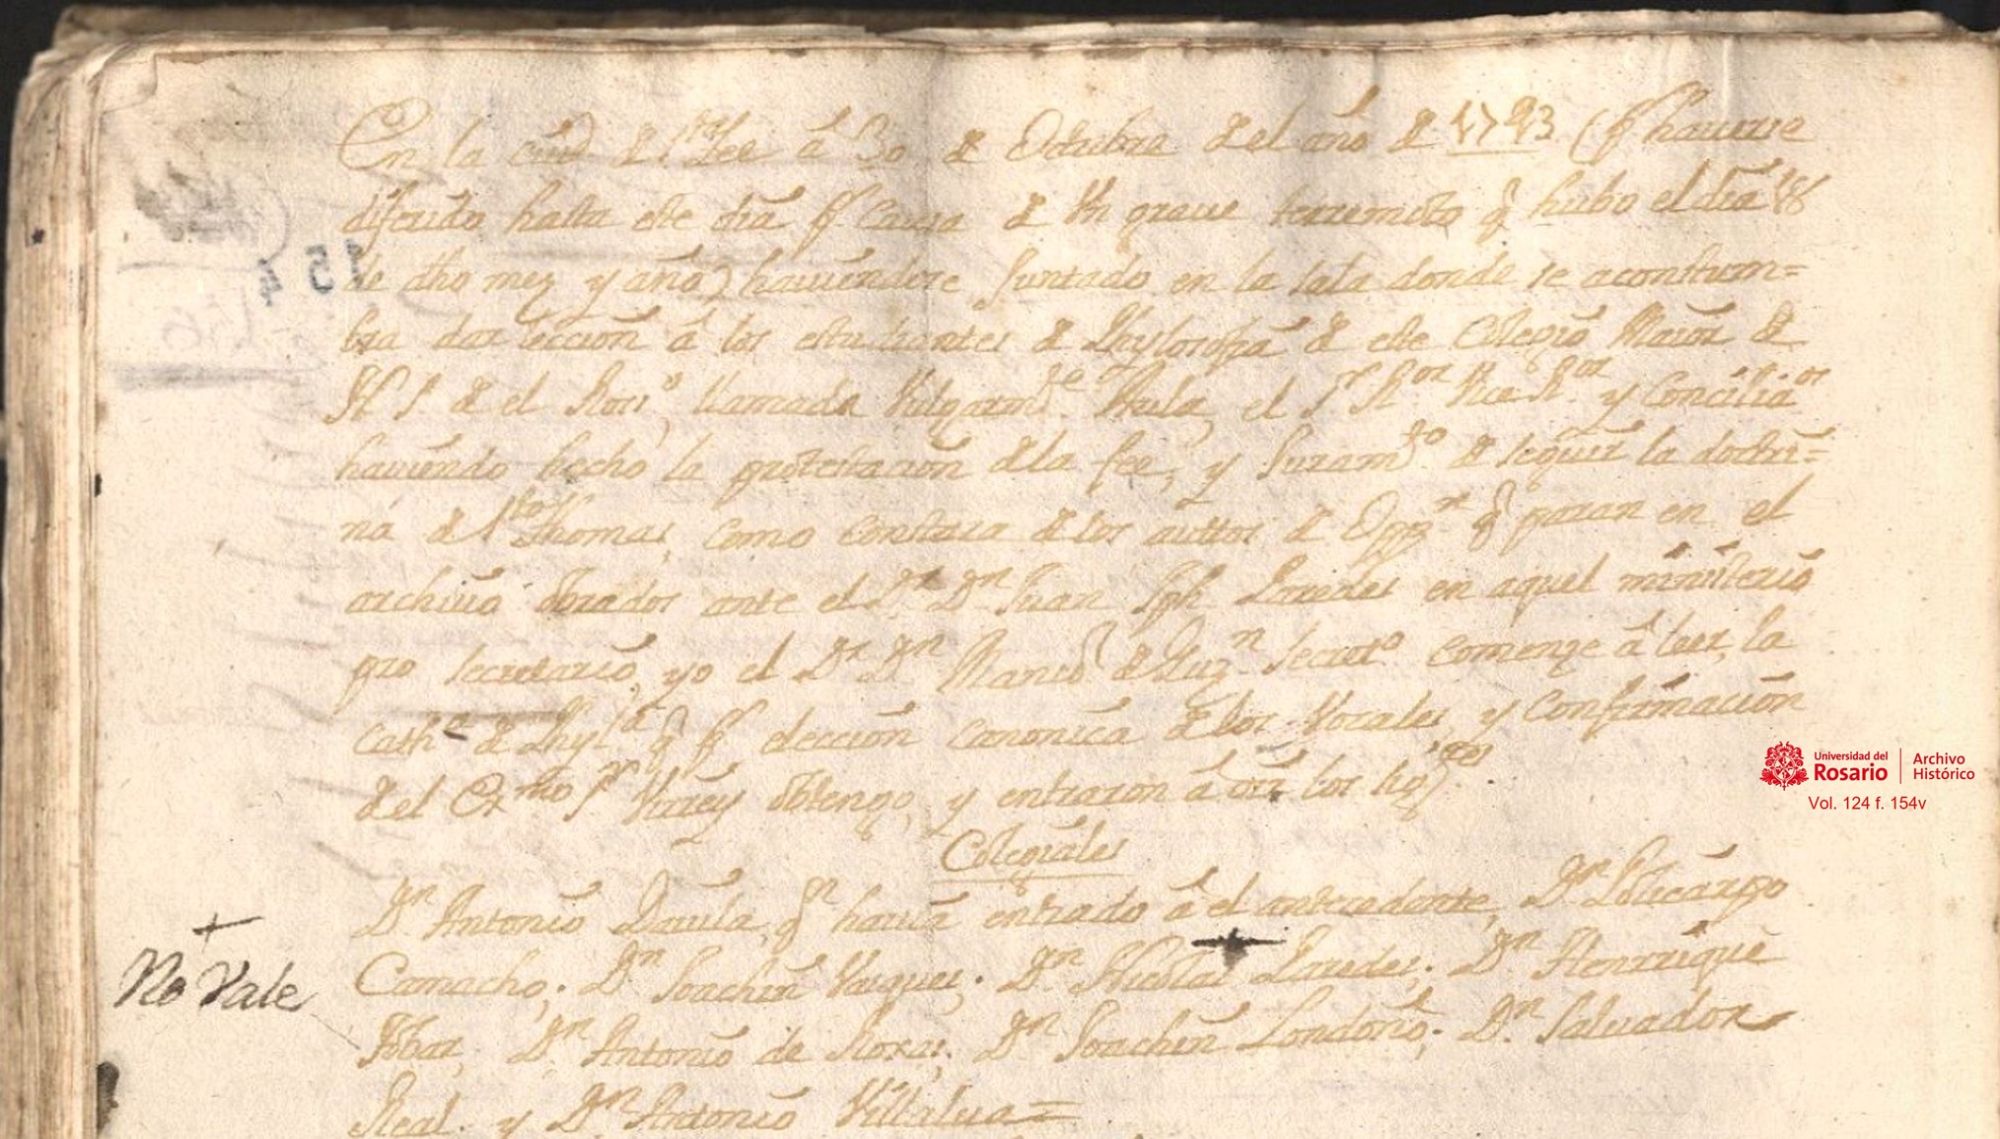 En la ciud de Sta Fee á 30 de Octubre del año de 1743 (pr haverse
diferido hasta este dia pr causa de Un grave terremoto q hubo el dia 18
de dho mez y año) haviendose Juntado en la sala donde se acostum=
bra dar leccion á los estudiantes de Phylosophia de este Colegio Maior de
N S de el Rosro, llamada Vulgarmte Aula, el Sr Ror Vice Ror y Conciliaos
haviendo hecho la protestacion de la fee, y Juramto de seguir la doctri=
na de Sto Thomas, como constara de los auttos de Oppn q paran en el
archivo obrados ante el Dr Dn Juan Jph Paredes en aquel ministerio
pro secretario, yo el Dr Dn de Guzn Secreto comenze á leer la
Catha de Phylia q pr eleccion canonica de los Vocales, y Confirmacion
del Exmo Sr Virrey obtengo, y entraron á oir los sigtes
Colegiales
Dn Antonio Davila, qn havia entrado á el antecedente, Dn Policarpo
Camacho; Dn Joachin Vasques; Dn Nicolas Paredes; Dn Henrrique
Tobar, Dn Antonio de Roxas; Dn Joachin Londoño; Dn Salvador
Real y Dn Antonio Villalva=
No Vale
154
Universidad del Rosario
Archivo Histórico
Vol. 124 f. 154v